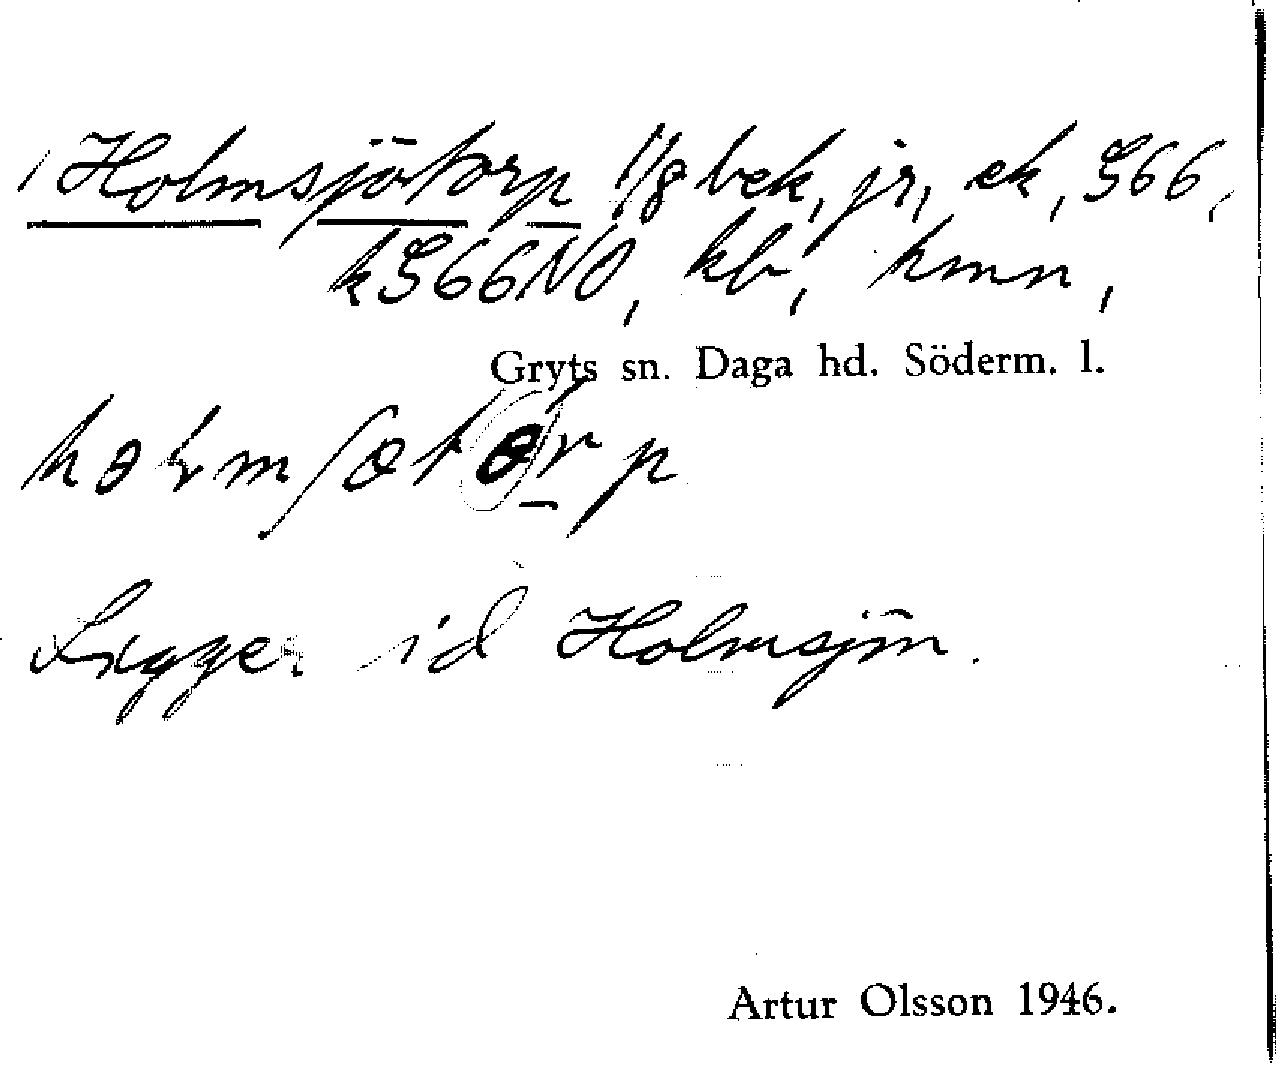 Holmsjötorp 1/8 bek, jr, ek, G66,
kG66NO, kb, hmn,
Gryts sn. Daga hd. Söderm. l.
Ligger id Holmsjön.
Artur Olsson 1946.